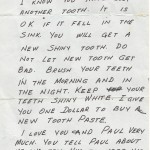 I KNOW YOU
ANOTHER TOOTH. IT IS
OK IF IT FELL IN THE
SINK. YOU WILL GET A
NEW SHINY TOOTH. DO
NOT LET NEW TOOTH GET
BAD. BRUSH YOUR TEETH
IN THE MORNING AND IN
THE NIGHT. KEEP YOUR
TEETH SHINY WHITE. I GIVE
YOU ONE DOLLAR TO BUY
NEW TOOTH PASTE.
I LOVE YOU AND PAUL VERY
MUCH. YOU TELL PAUL ABOUT